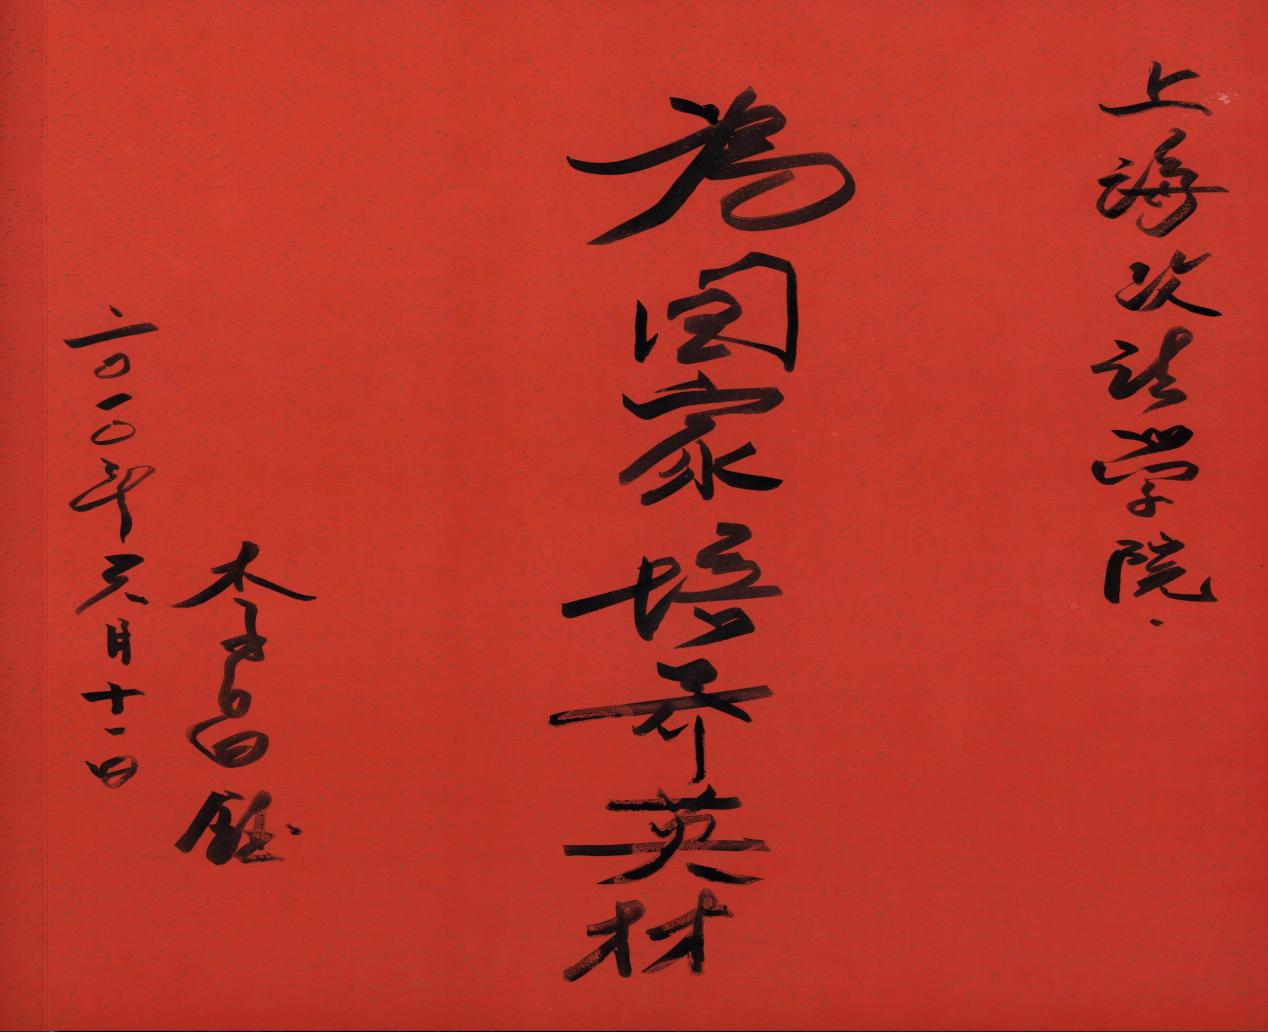 上海政法学院
为国家培养英材
李昌钰
二〇一〇年六月十一日